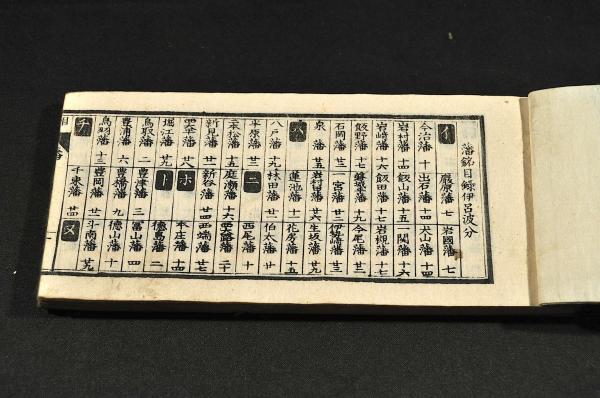 藩銘目録伊呂波分
イ 嚴原藩 七 岩國藩 七
今治藩 十 出石藩 十四 犬山藩 十四
岩村藩 十四 飯山藩 十五 一関藩 十六
岩崎藩 十六 飯田藩 十七 岩槻藩 十七
飯野藩 十七 藩 十九 今尾藩 廿二
石岡藩 廿二 一宮藩 廿三 伊勢崎藩 廿三
泉藩 廿五 岩村田藩 廿六 生坂藩 廿九
ハ 蓮池藩 十二 花房藩 十五
八戸藩 十九 林田藩 廿一 伯太藩 廿二
半原藩 廿九 ニ 西尾藩 十
二本松藩 十五 庭瀬藩 十六 西大路藩 二十
新見藩 廿一 新谷藩 廿四 西端藩 廿七
藩 廿八 ホ 本庄藩 十四
堀江藩 廿九 ト 徳島藩 二
鳥取藩 二 豊津藩 三 富山藩 四
豊浦藩 六 豊橋藩 九 徳山藩 十
鳥羽藩 十三 豊岡藩 廿一 斗南藩 廿九
チ 千束藩 廿四 ヌ